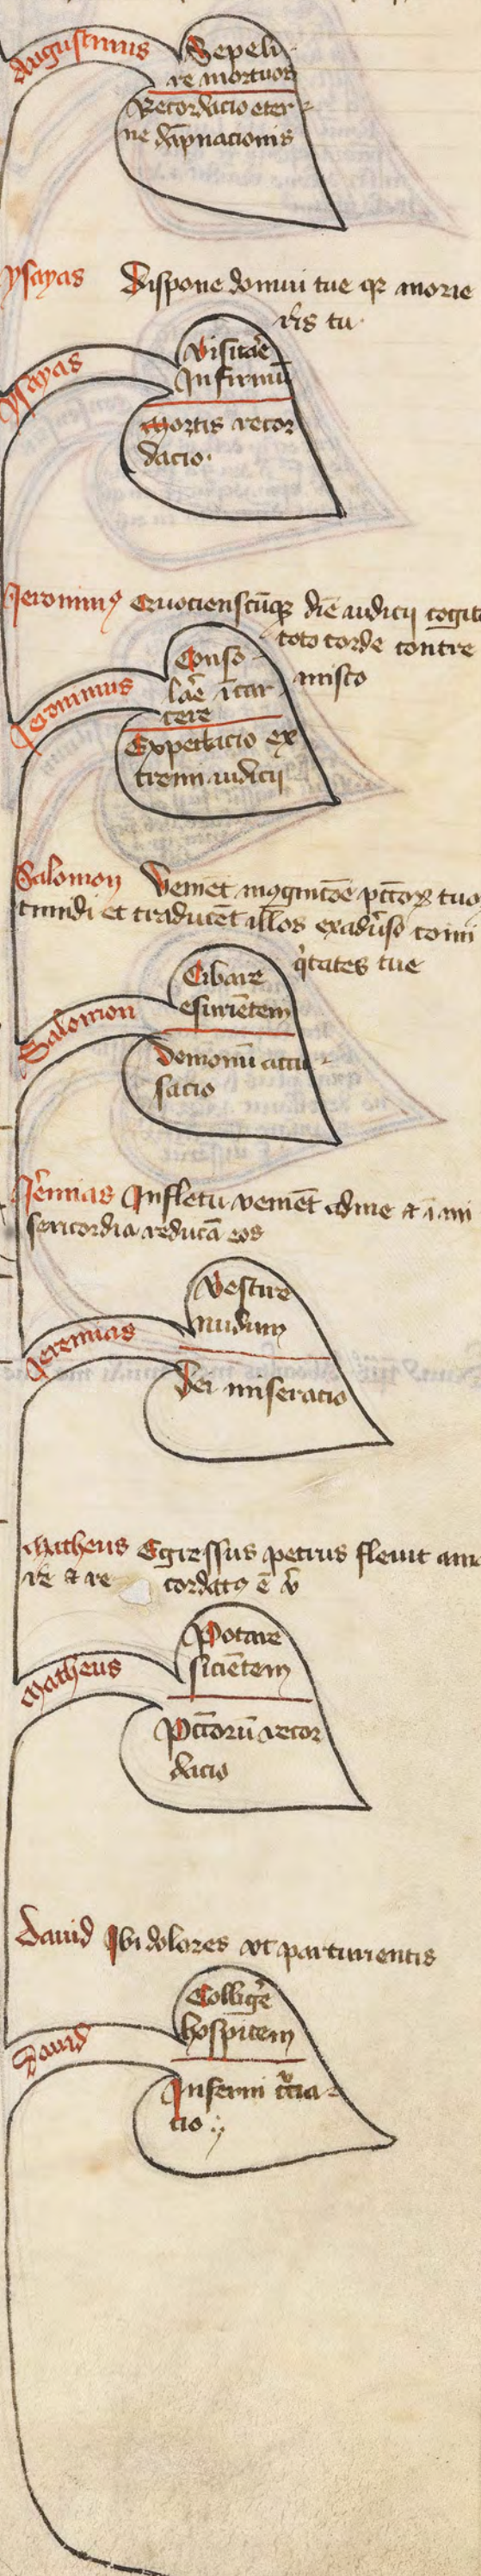 Augustinus
Sepeli
re mortuos
Recordacio eter
ne dāpnacionis
ysayas Dispone domui tue qꝛ morie
ris tu
ysayas
Visitāe
Infirmū
Mortis recor
dacio
Jeronimꝰ Quociensciūqꝫ diē iudicij cogit
toto corde contre
misco
Jeronimus
Conso
lāe ī car
cere
Expectacio ex
tremi iudicij
Salomon Venient in cogitacōe pctōꝝ tuoꝝ
timidi et traducēt illos ex adūso comi
qͥtates tue
Salomon
Cibare
esuriētem
Demonū accu
sacio
Jēmias In fletu veniēt ad me et ī mi
sericordia reducā eos
Jeremias
Vestire
nudum
Dei miseracio
Matheus Egressus petrus fleuit ama
re et re cordatꝰ ē v̄
Matheus
Potare
siciētem
Pctōrū recor
dacio
Dauid Ibi dolores vt parturientis
Dauid
Colligē
hospitem
Inferni
cio